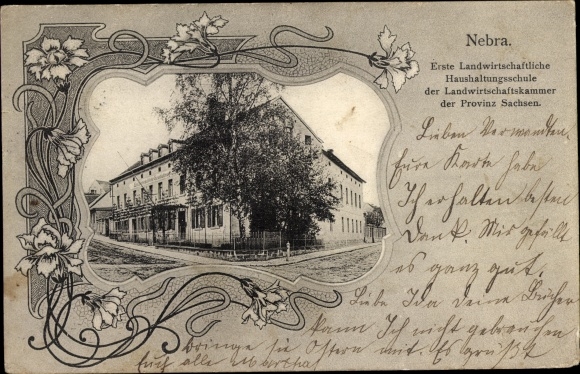 Nebra.
Erste Landwirtschaftliche
Haushaltungsschule
der Landwirtschaftskammer
der Provinz Sachsen.
Lieben Verwandten,
Eure Karte habe
Ich erhalten besten
Dank. Mir gefällt
es ganz gut.
Liebe Ida deine Bücher
kann Ich nicht gebrauchen
bringe sie Ostern mit. Es grüßt
Euch alle Martha